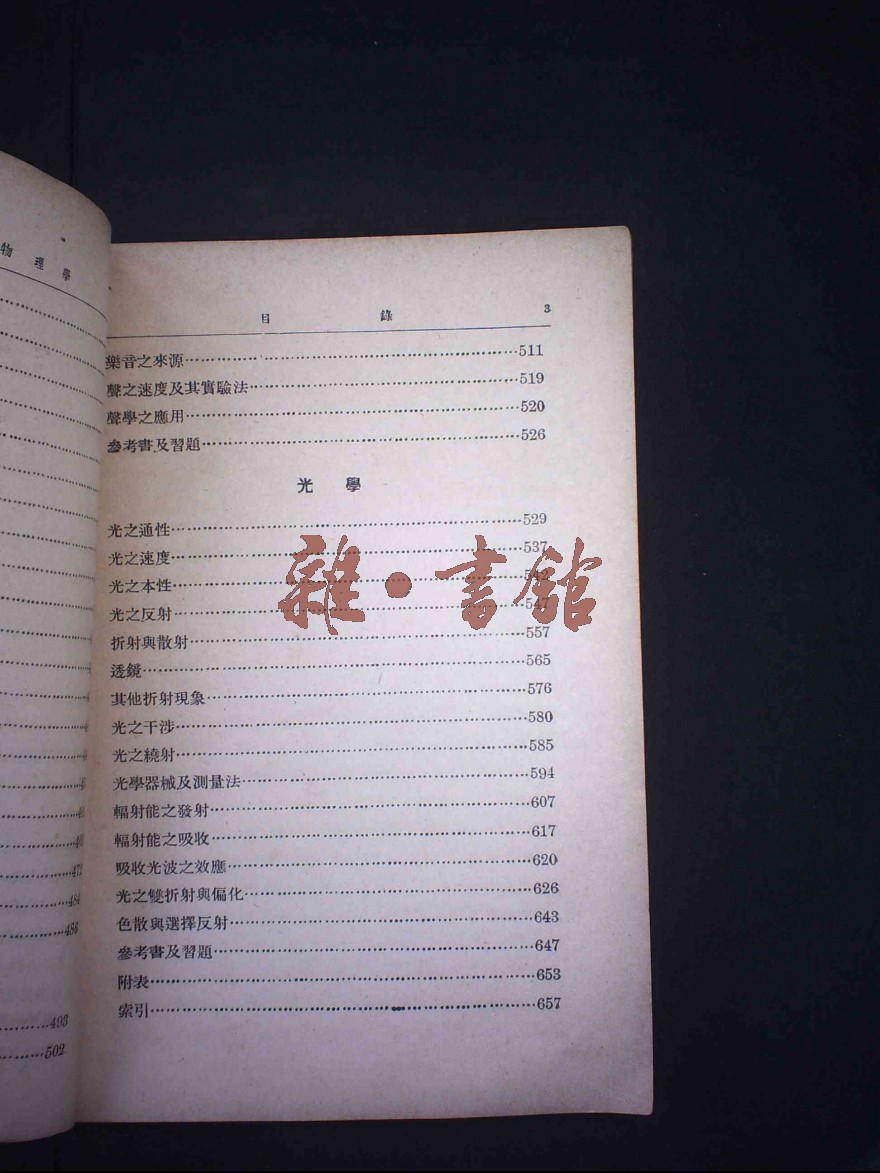 物理學
472
484
486
493
502
目錄 3
樂音之來源……511
聲之速度及其實驗法……519
聲學之應用……520
參考書及習題……526
光學
光之通性……529
光之速度……537
光之本性……542
光之反射……547
折射與散射……557
透鏡……565
其他折射現象……576
光之干涉……580
光之繞射……585
光學器械及測量法……594
輻射能之發射……607
輻射能之吸收……617
吸收光波之效應……620
光之雙折射與偏化……626
色散與選擇反射……643
參考書及習題……647
附表……653
索引……657
雜·書館